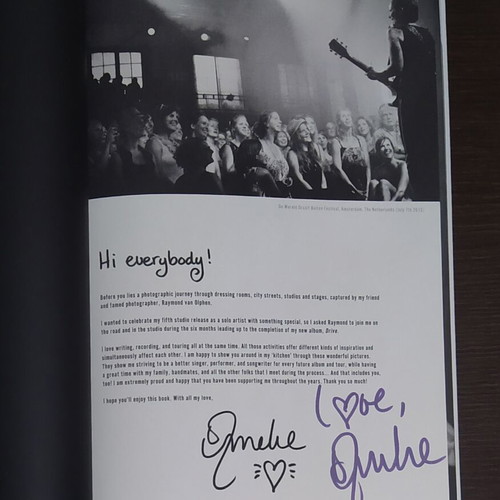 Hi everybody!
Before you lies a photographic journey through dressing rooms, city streets, studios and stages, captured by my friend
and famed photographer, Raymond van Olphen.
I wanted to celebrate my fifth studio release as a solo artist with something special, so I asked Raymond to join me on
the road and in the studio during the six months leading up to the completion of my new album, Drive.
I love writing, recording, and touring all at the same time. All those activities offer different kinds of inspiration and
simultaneously affect each other. I am happy to show you around in my 'kitchen' through these wonderful pictures.
They show me striving to be a better singer, performer, and songwriter for every future album and tour, while having
a great time with my family, bandmates, and all the other folks that I meet during the process... And that includes you,
too! I am extremely proud and happy that you have been supporting me throughout the years. Thank you so much!
I hope you'll enjoy this book. With all my love,
Love,